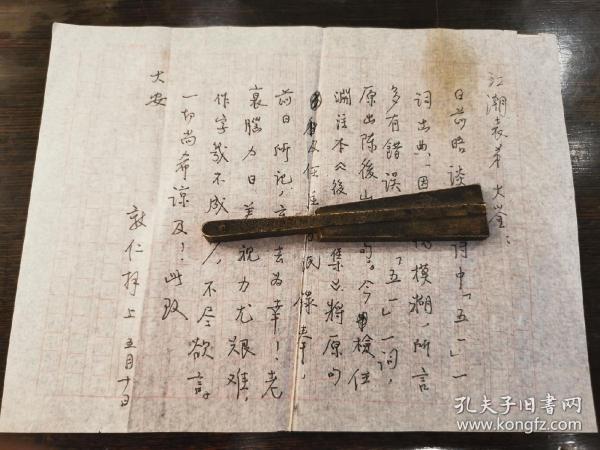 江潮表弟大鉴：
日前晤谈 诗中「五一」一
词出典，因 模糊，所言
多有错误 「五一」一词，
原出陈後山 句。今检任
渊注本《後 集》将原句
及任 录奉，
前日所记， 去为幸！老
衰腾力日 视力尤艰难，
作字几不成 ，不尽欲言。
一切尚希谅及！此致
大安
敦仁拜上 五月十日
孔夫子旧书网
www.kongfz.com